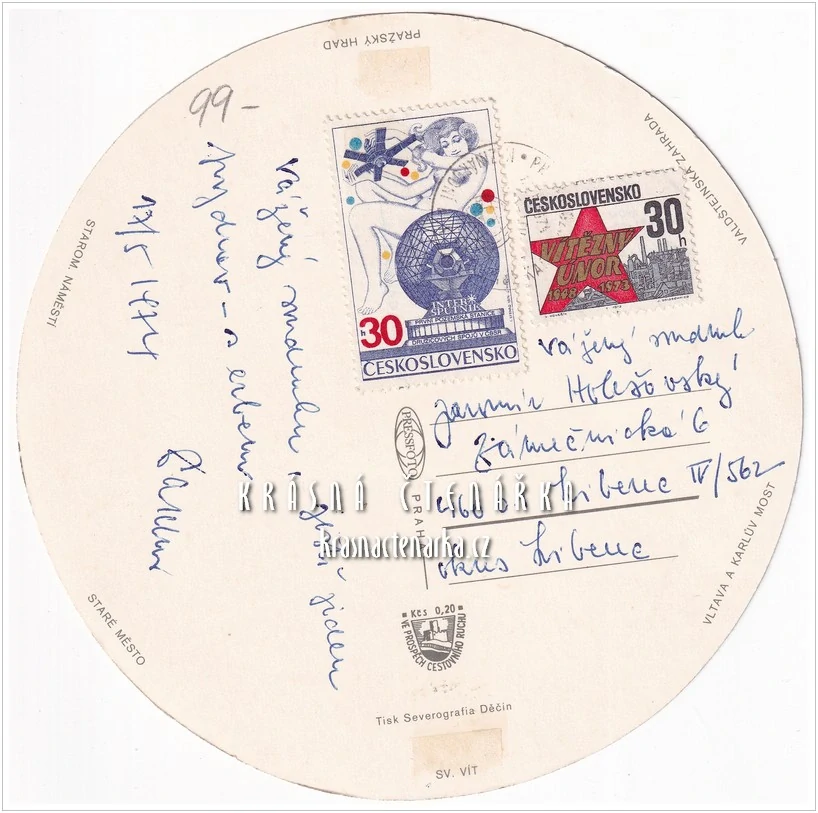 PRAŽSKÝ HRAD
VALDŠTEJNSKÁ ZAHRADA
VLTAVA A KARLŮV MOST
SV. VÍT
STARÉ MĚSTO
STAROM. NAMĚSTÍ
99-
Vážený
17/5 1974
INTER
SPUTNIK
PRVNÍ POZEMSKÁ STANICE
DRUŽICOVÝCH SPOJŮ V ČSSR
30 h
ČESKOSLOVENSKO
ČESKOSLOVENSKO
30 h
VÍTĚZNÝ
ÚNOR
1948 - 1973
Vážený
Jaromír Holešovský
Zámečnická 6
460 Liberec IV/562
okres Liberec
PRESSFOTO
PRAHA
KRÁSNÁ ČTENÁŘKA
krasnactenarka.cz
Kčs 0,20
VE PROSPĚCH CESTOVNÍHO RUCHU
Tisk Severografia Děčín